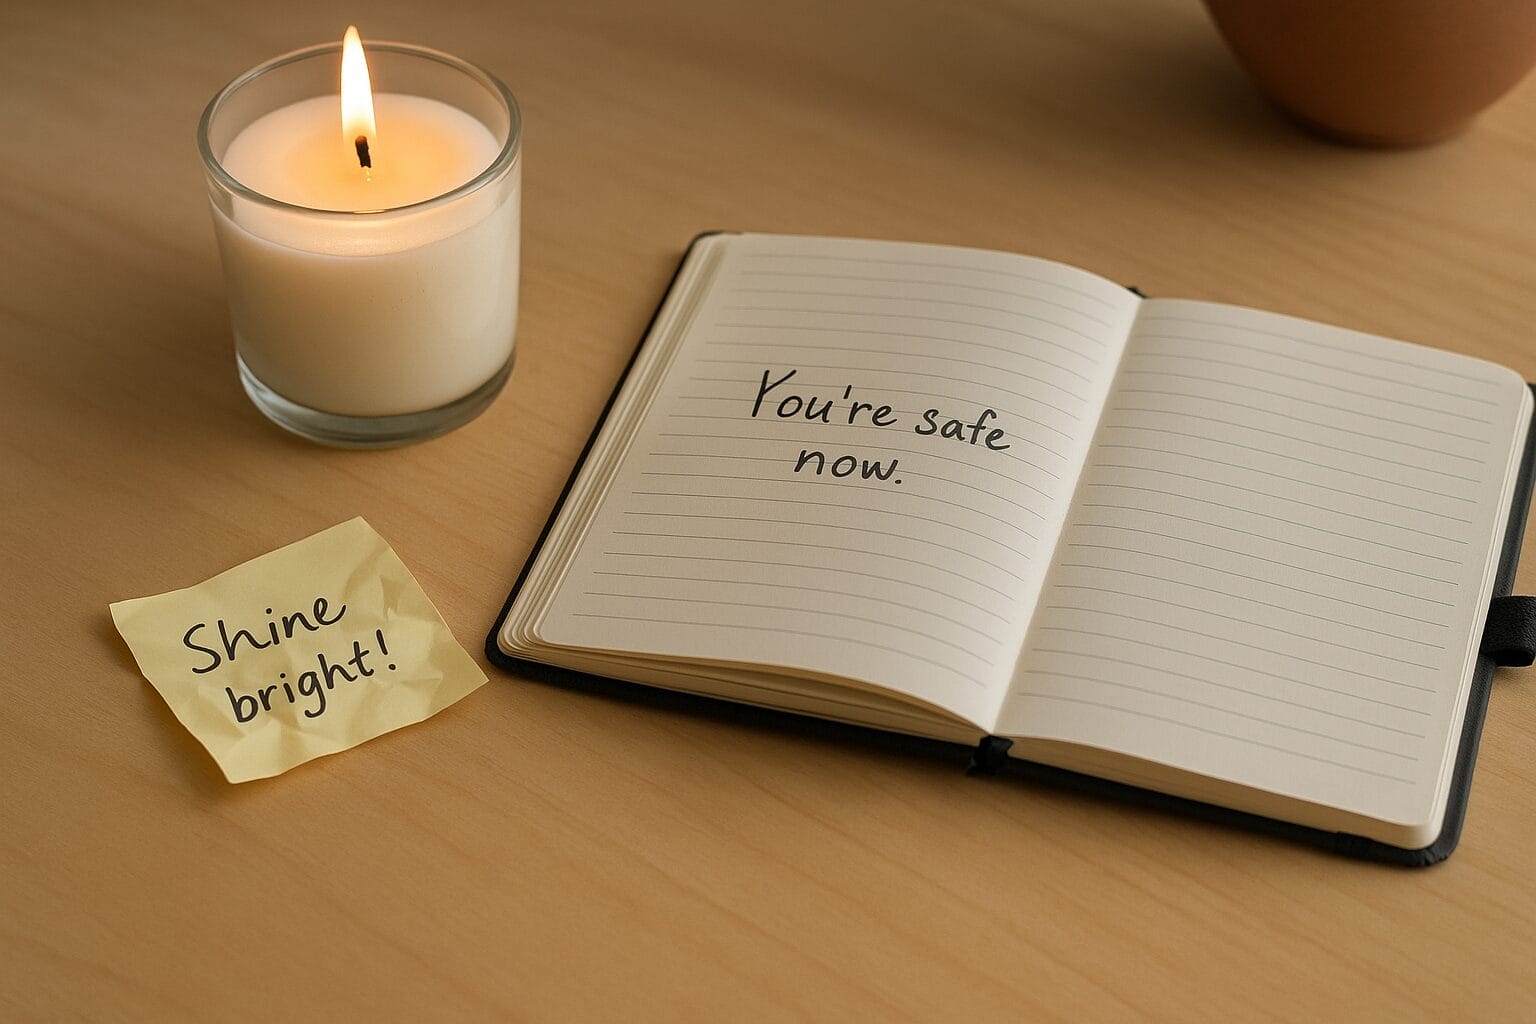 You're safe
now.
Shine
bright!